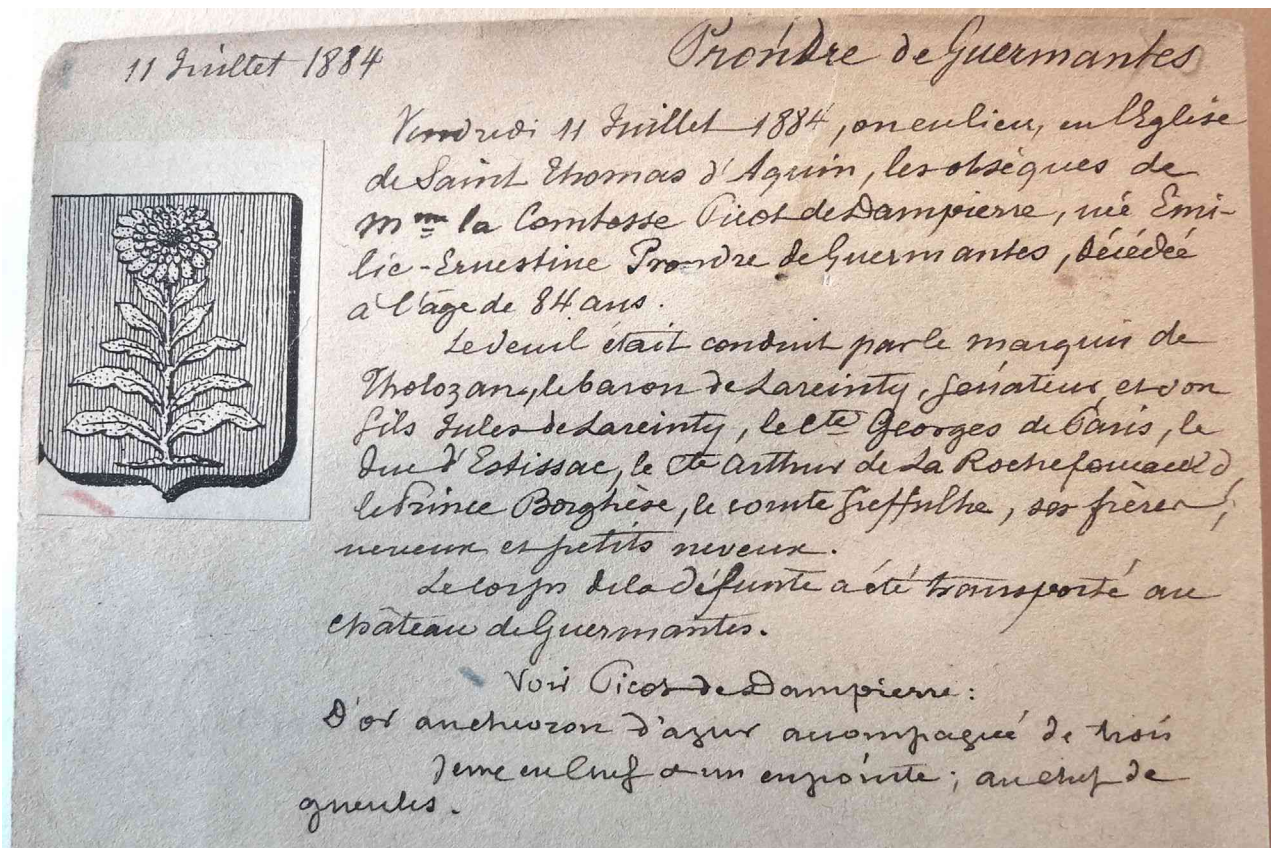 11 Juillet 1884
Prondre de Guermantes
Vendredi 11 Juillet 1884, on eu lieu, en l'Eglise
de Saint Thomas d'Aquin, les obsèques de
Mme la Comtesse Picot de Dampierre, née Emi-
lie-Ernestine Prondre de Guermantes, décédée
à l'âge de 84 ans.
Le deuil était conduit par le marquis de
Tholozan, le baron de Lareinty, sénateur, et son
fils Jules de Lareinty, le cte Georges de Paris, le
duc d'Estissac, le cte Arthur de La Rochefoucauld
le Prince Borghèse, le comte Greffulhe, ses frères,
neveux et petits neveux.
Le corps de la défunte a été transporté au
château de Guermantes.
Voir Picot de Dampierre :
D'or au chevron d'azur accompagné de trois
deux en chef & un en pointe ; au chef de
gueules.